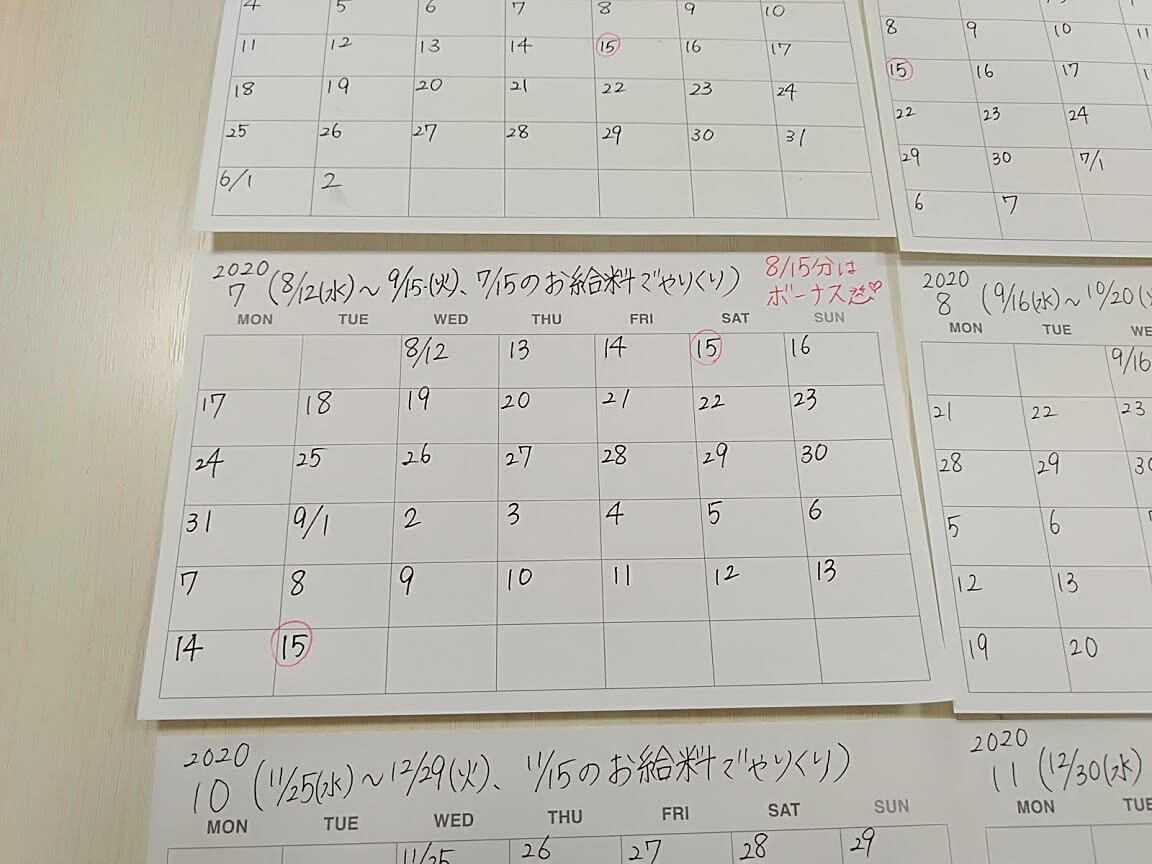 4 5 6 7 8 9 10
11 12 13 14 15 16 17
18 19 20 21 22 23 24
25 26 27 28 29 30 31
6/1 2
8 9 10 11
15 16 17
22 23 24
29 30 7/1
6 7
2020
7 (8/12(水)～9/15(火)、7/15のお給料でやりくり)
8/15分は
ボーナス
MON TUE WED THU FRI SAT SUN
8/12 13 14 15 16
17 18 19 20 21 22 23
24 25 26 27 28 29 30
31 9/1 2 3 4 5 6
7 8 9 10 11 12 13
14 15
2020
8 (9/16(水)～10/20(火
MON TUE WE
9/16
21 22 23
28 29 30
5 6
12 13
19 20
2020
10 (11/25(水)～12/29(火)、11/15のお給料でやりくり)
MON TUE WED THU FRI SAT SUN
11/25 26 27 28 29
2020
11 (12/30(水)
MON TUE